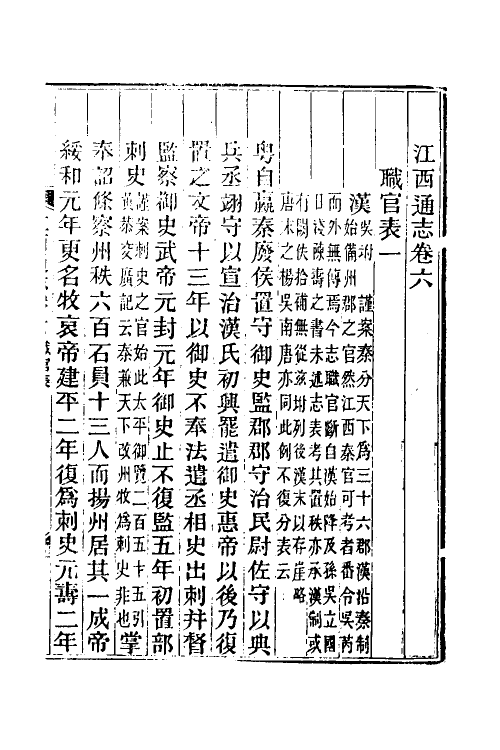 江西通志卷六
職官表一
漢吳坿
謹案秦分天下為三十六郡漢沿秦制
始備州郡之官然江西秦官可考者番令吳芮
而外無傳焉今志職官斷自漢始降及孫吳立國
日淺陳壽之書未述志表考其置秩亦承漢制或
有闕佚拾補無從茲坿列後漢末以存崖略
唐末之楊吳南唐亦同此例不復分表云
粵自嬴秦廢侯置守御史監郡郡守治民尉佐守以典
兵丞翊守以宣治漢氏初興罷遣御史惠帝以後乃復
置之文帝十三年以御史不奉法遣丞相史出刺幷督
監察御史武帝元封元年御史止不復監五年初置部
刺史
謹案刺史之官始此太平御覽二百五十五引
黃恭交廣記云秦兼天下改州牧為刺史非也
掌
奉詔條察州秩六百石員十三人而揚州居其一成帝
綏和元年更名牧哀帝建平二年復為刺史元壽二年
職官表